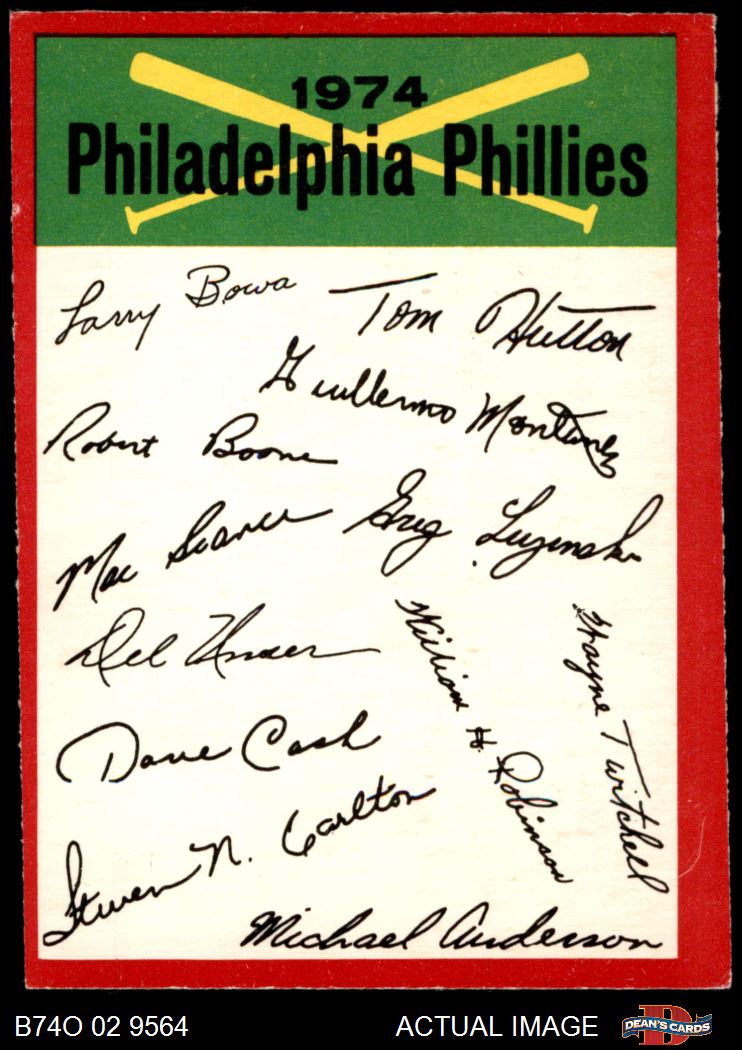 1974
Philadelphia Phillies
Larry Bowa
Tom Hutton
Guillermo Montanez
Robert Boone
Mac Scarce
Greg Luzinski
Del Unser
William H. Robinson
Wayne Twitchell
Dave Cash
Steven N. Carlton
Michael Anderson
B74O 02 9564
ACTUAL IMAGE
DEAN'S CARDS